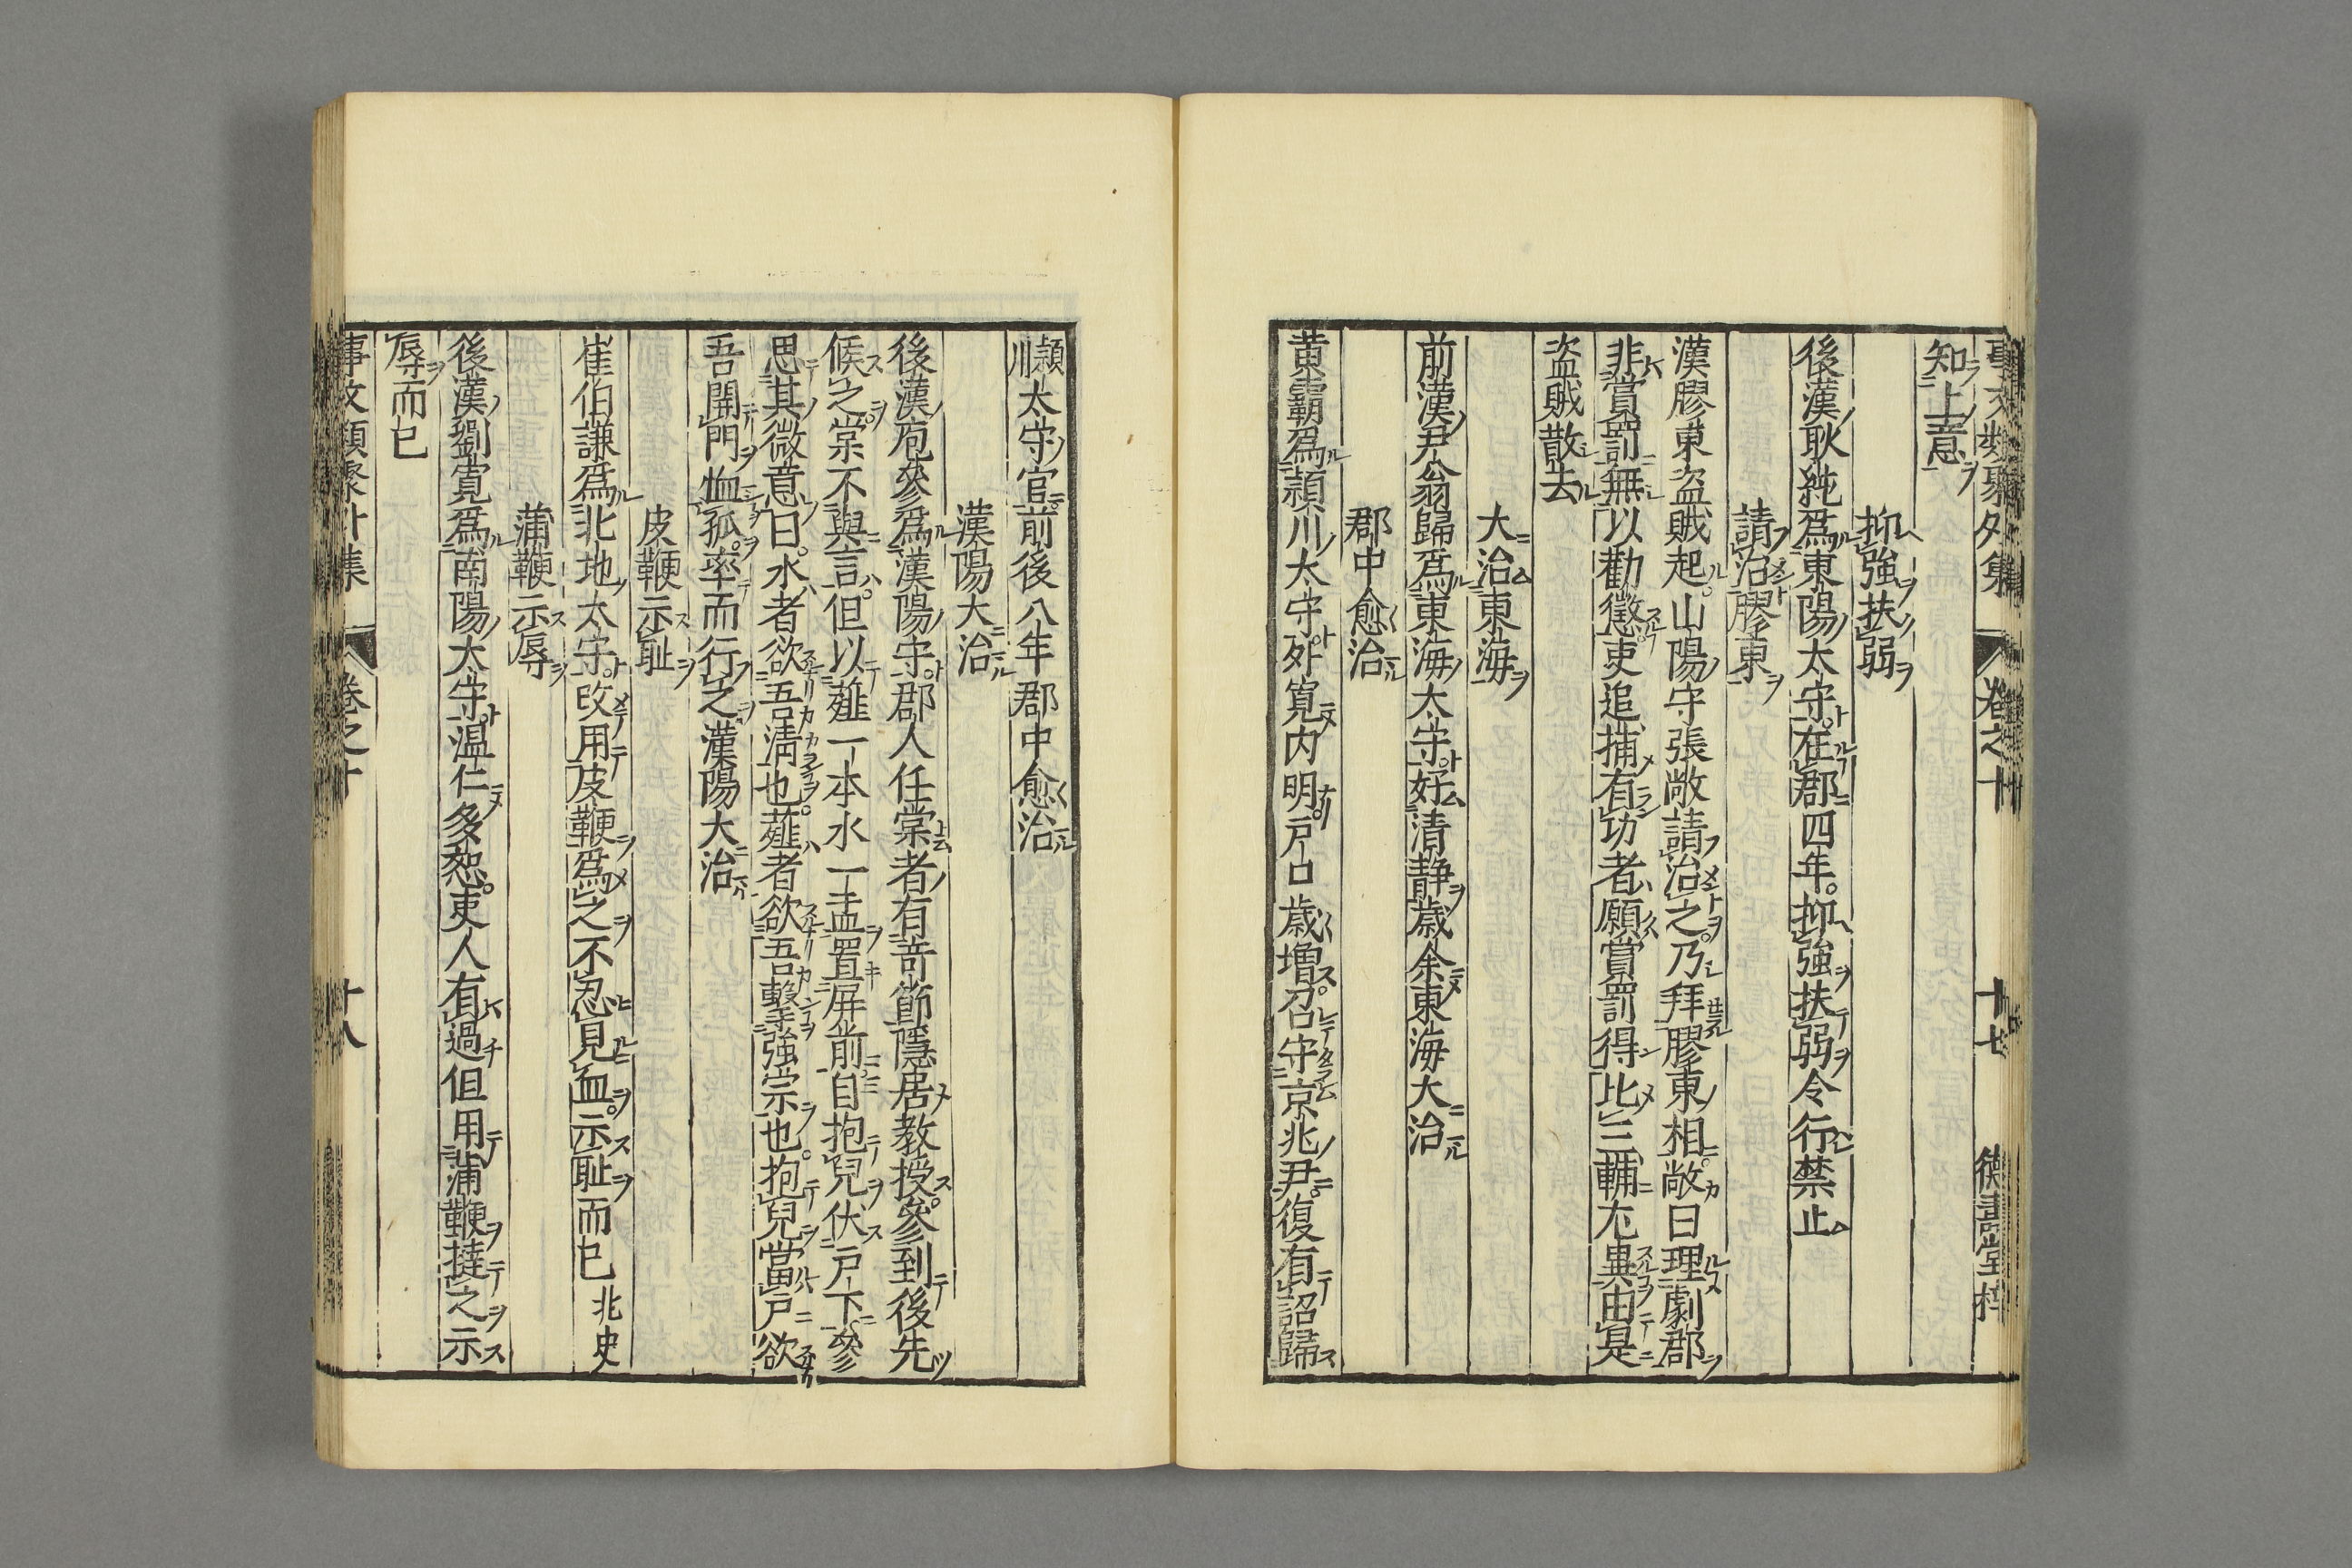 事文類聚外集 卷之十 十七 德壽堂梓
知上意
抑強扶弱
後漢耿純爲東陽太守在郡四年。抑強扶弱令行禁止
請治膠東
漢膠東盗賊起。山陽守張敞請治之。乃拜膠東相。敞曰理劇郡
非賞罰無以勸懲吏追捕有功者願賞罰得比三輔尢異由是
盗賊散去
大治東海
前漢尹翁歸爲東海太守。好清静歳余東海大治
郡中愈治
黄霸爲潁川太守。外寬内明。戸口歳増。召守京兆尹。復有詔歸
潁川太守官。前後八年郡中愈治
漢陽大治
後漢龐參爲漢陽守。郡人任棠者有竒節隱居教授。參到後先
候之。棠不與言。但以薤一本水一盂置屏前。自抱兒伏戸下參
思其微意曰。水者欲吾清也。薤者欲吾擊強宗也。抱兒當戸欲
吾開門恤孤。率而行之漢陽大治
皮鞭示耻
崔伯謙爲北地太守。改用皮鞭爲之不忍見血。示耻而已 北史
蒲鞭示辱
後漢劉寛爲南陽太守。温仁多恕。吏人有過但用蒲鞭撻之示
辱而已
事文類聚外集 卷之十 十八